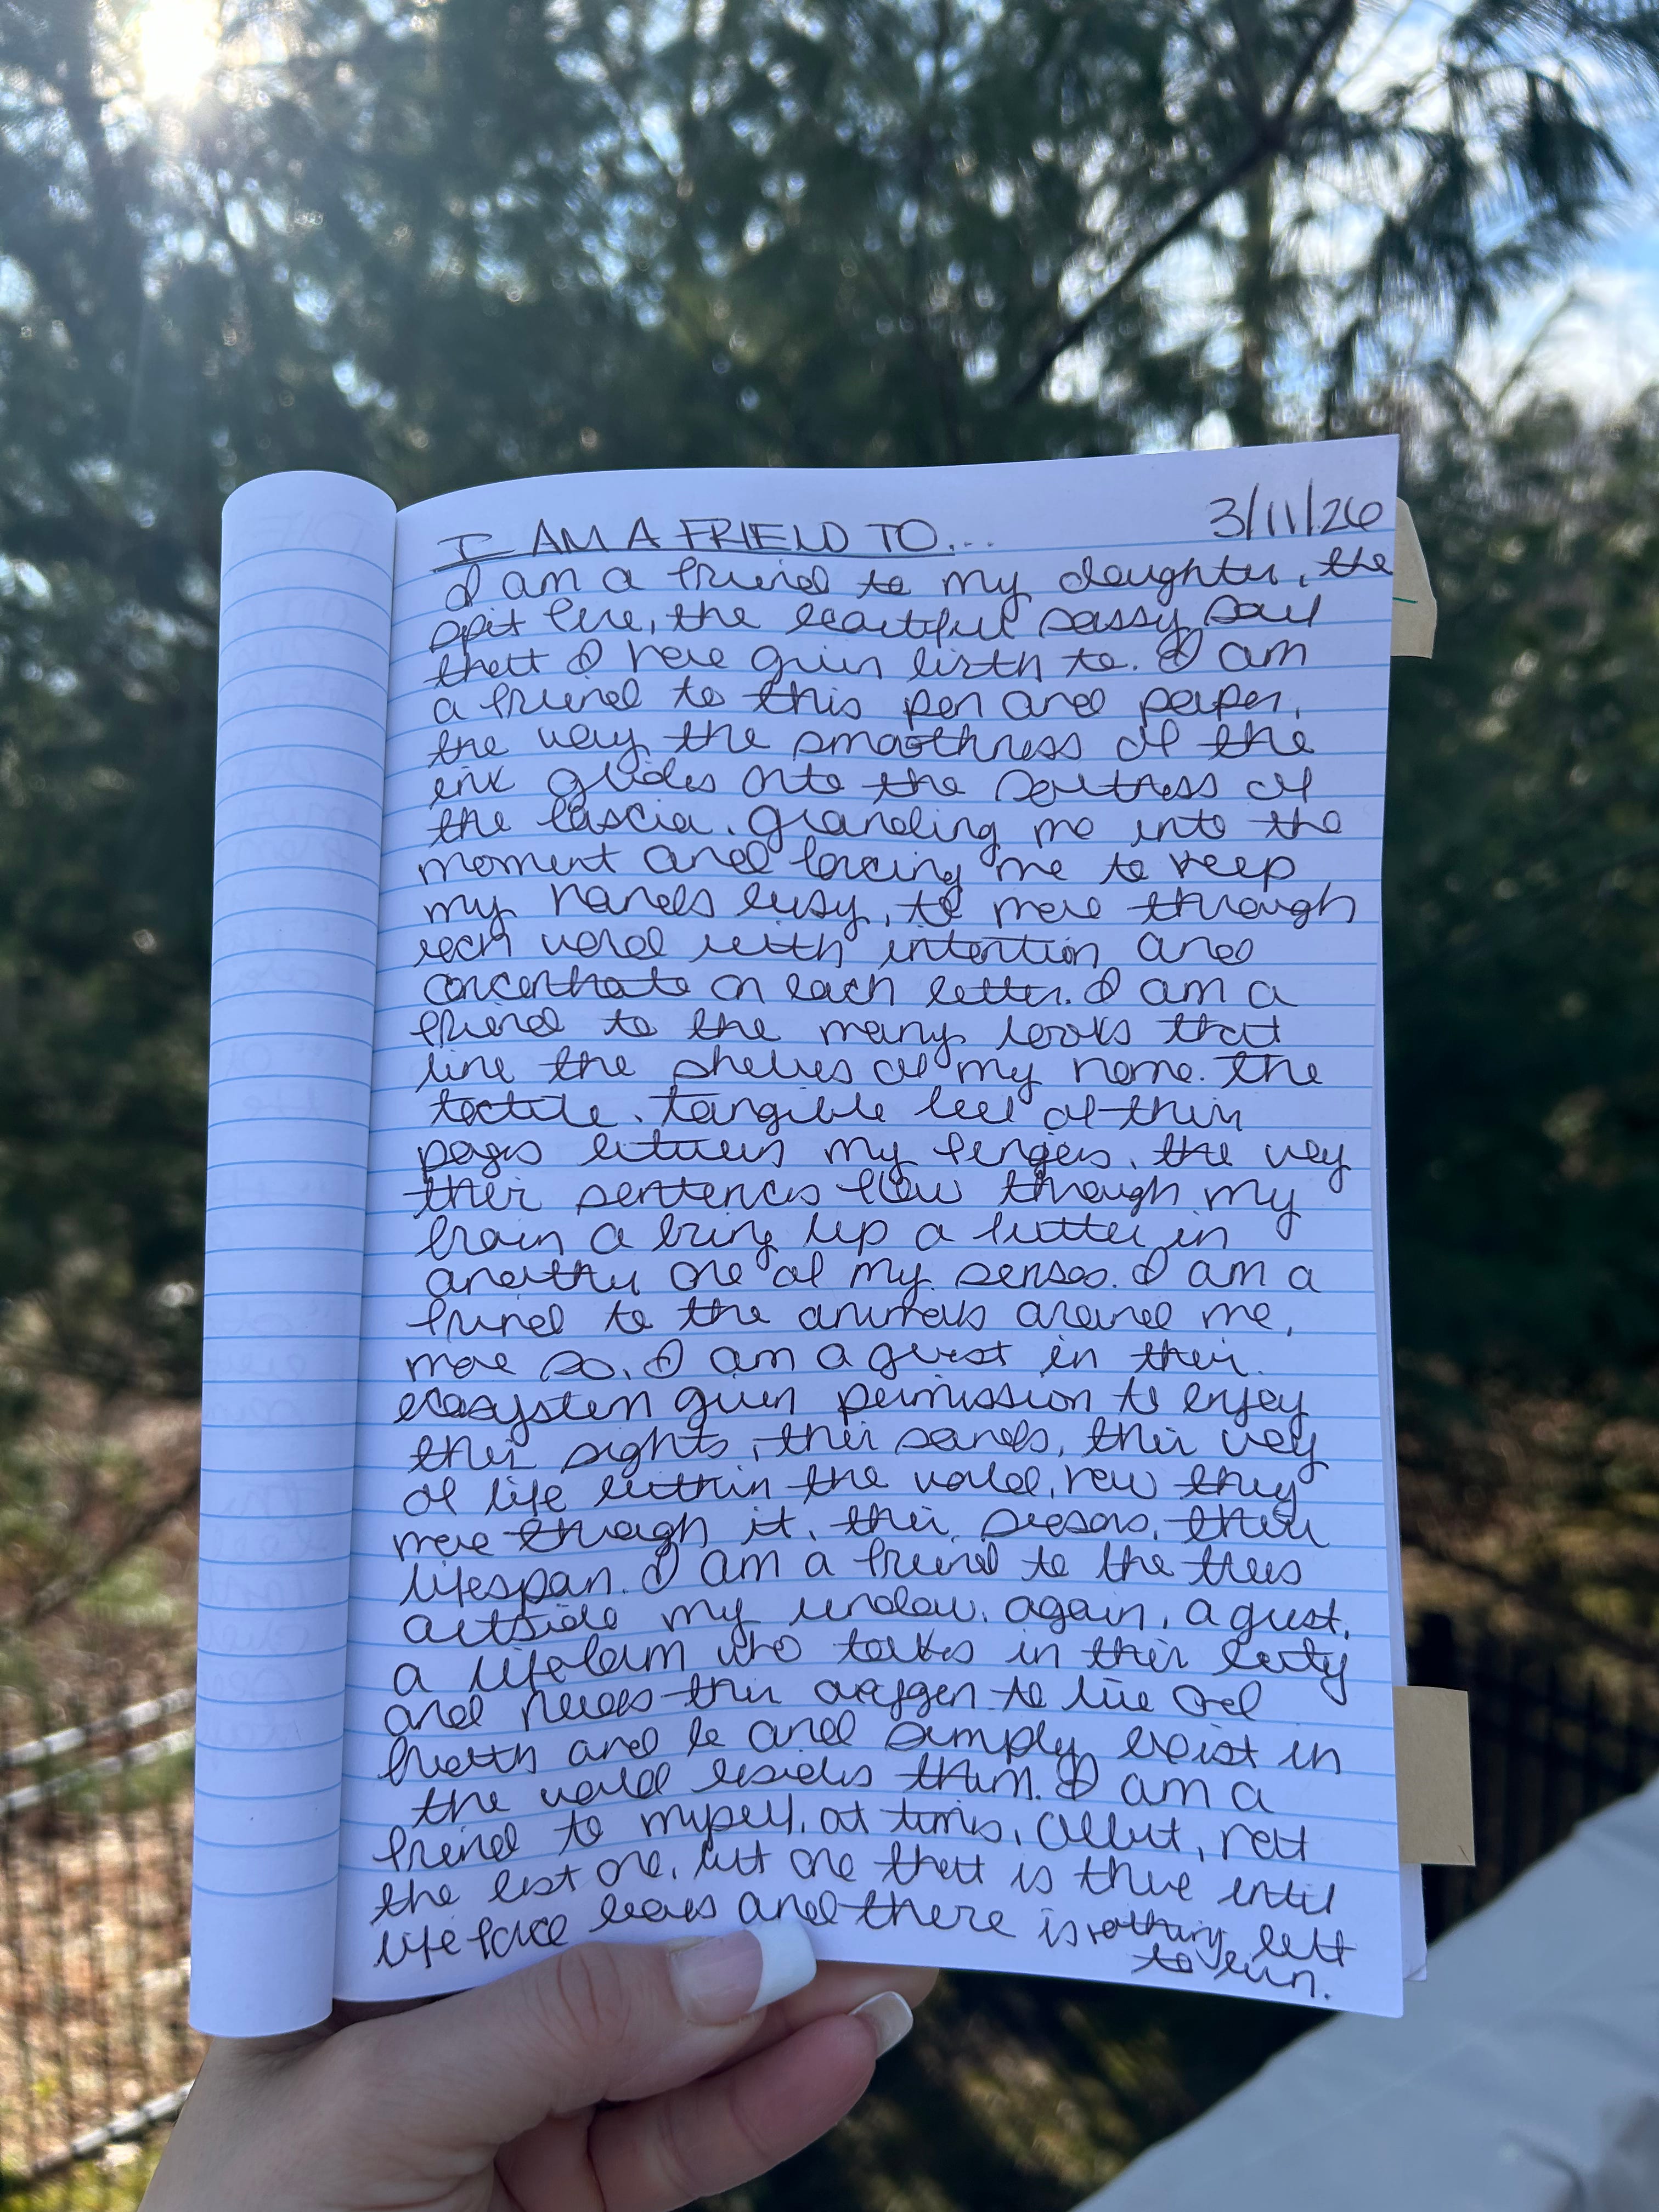 I AM A FRIEND TO... 3/11/26
I am a friend to my daughter, the
spit fire, the beautiful sassy soul
that I have given birth to. I am
a friend to this pen and paper,
the way the smoothness of the
ink glides onto the softness of
the fascia. grounding me into the
moment and forcing me to keep
my hands busy, to move through
each word with intention and
concentrate on each letter. I am a
friend to the many books that
line the shelves of my home. The
tactile, tangible feel of their
pages between my fingers, the way
their sentences flow through my
brain a bring up a flutter in
another one of my senses. I am a
friend to the animals around me,
more so, I am a guest in their
ecosystem given permission to enjoy
their sights, their sounds, their way
of life within the world, how they
move through it, their seasons, their
lifespan. I am a friend to the trees
outside my window. again, a guest,
a lifeform who takes in their beauty
and needs their oxygen to live and
breath and be and simply exist in
the world besides them. I am a
friend to myself, at times, albeit, not
the best one, but one that is there until
life force leaves and there is nothing left
to